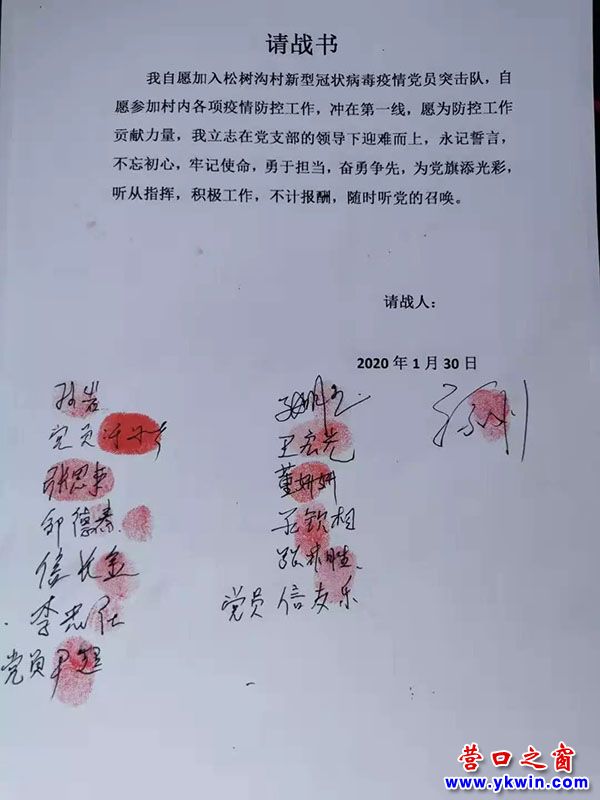 请战书
我自愿加入松树沟村新型冠状病毒疫情党员突击队，自
愿参加村内各项疫情防控工作，冲在第一线，愿为防控工作
贡献力量，我立志在党支部的领导下迎难而上，永记誓言，
不忘初心，牢记使命，勇于担当，奋勇争先，为党旗添光彩，
听从指挥，积极工作，不计报酬，随时听党的召唤。
请战人：
2020 年 1 月 30 日
孙岩
党员
张思来
邹德春
信长金
李忠仕
党员尹超
王宏光
董妍妍
王钦相
张来胜
党员 信友乐
营口之窗
www.ykwin.com